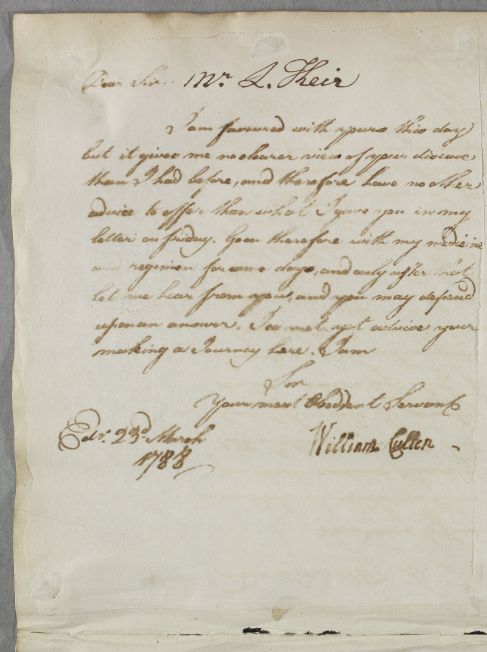 Dear Sir. Mr. L. Keir
I am favoured with yours this day
but it gives me no clearer view of your disease
than I had before, and therefore have no other
advice to offer than what I gave you in my
letter on friday. Goon therefore with my medicine
and regimen for some days, and only after that
let me hear from you, and you may depend
upon an answer. I do not yet advise your
making a Journey here. I am
Sir
Your most Obedient Servant
Edr. 23d. March William Cullen
1788